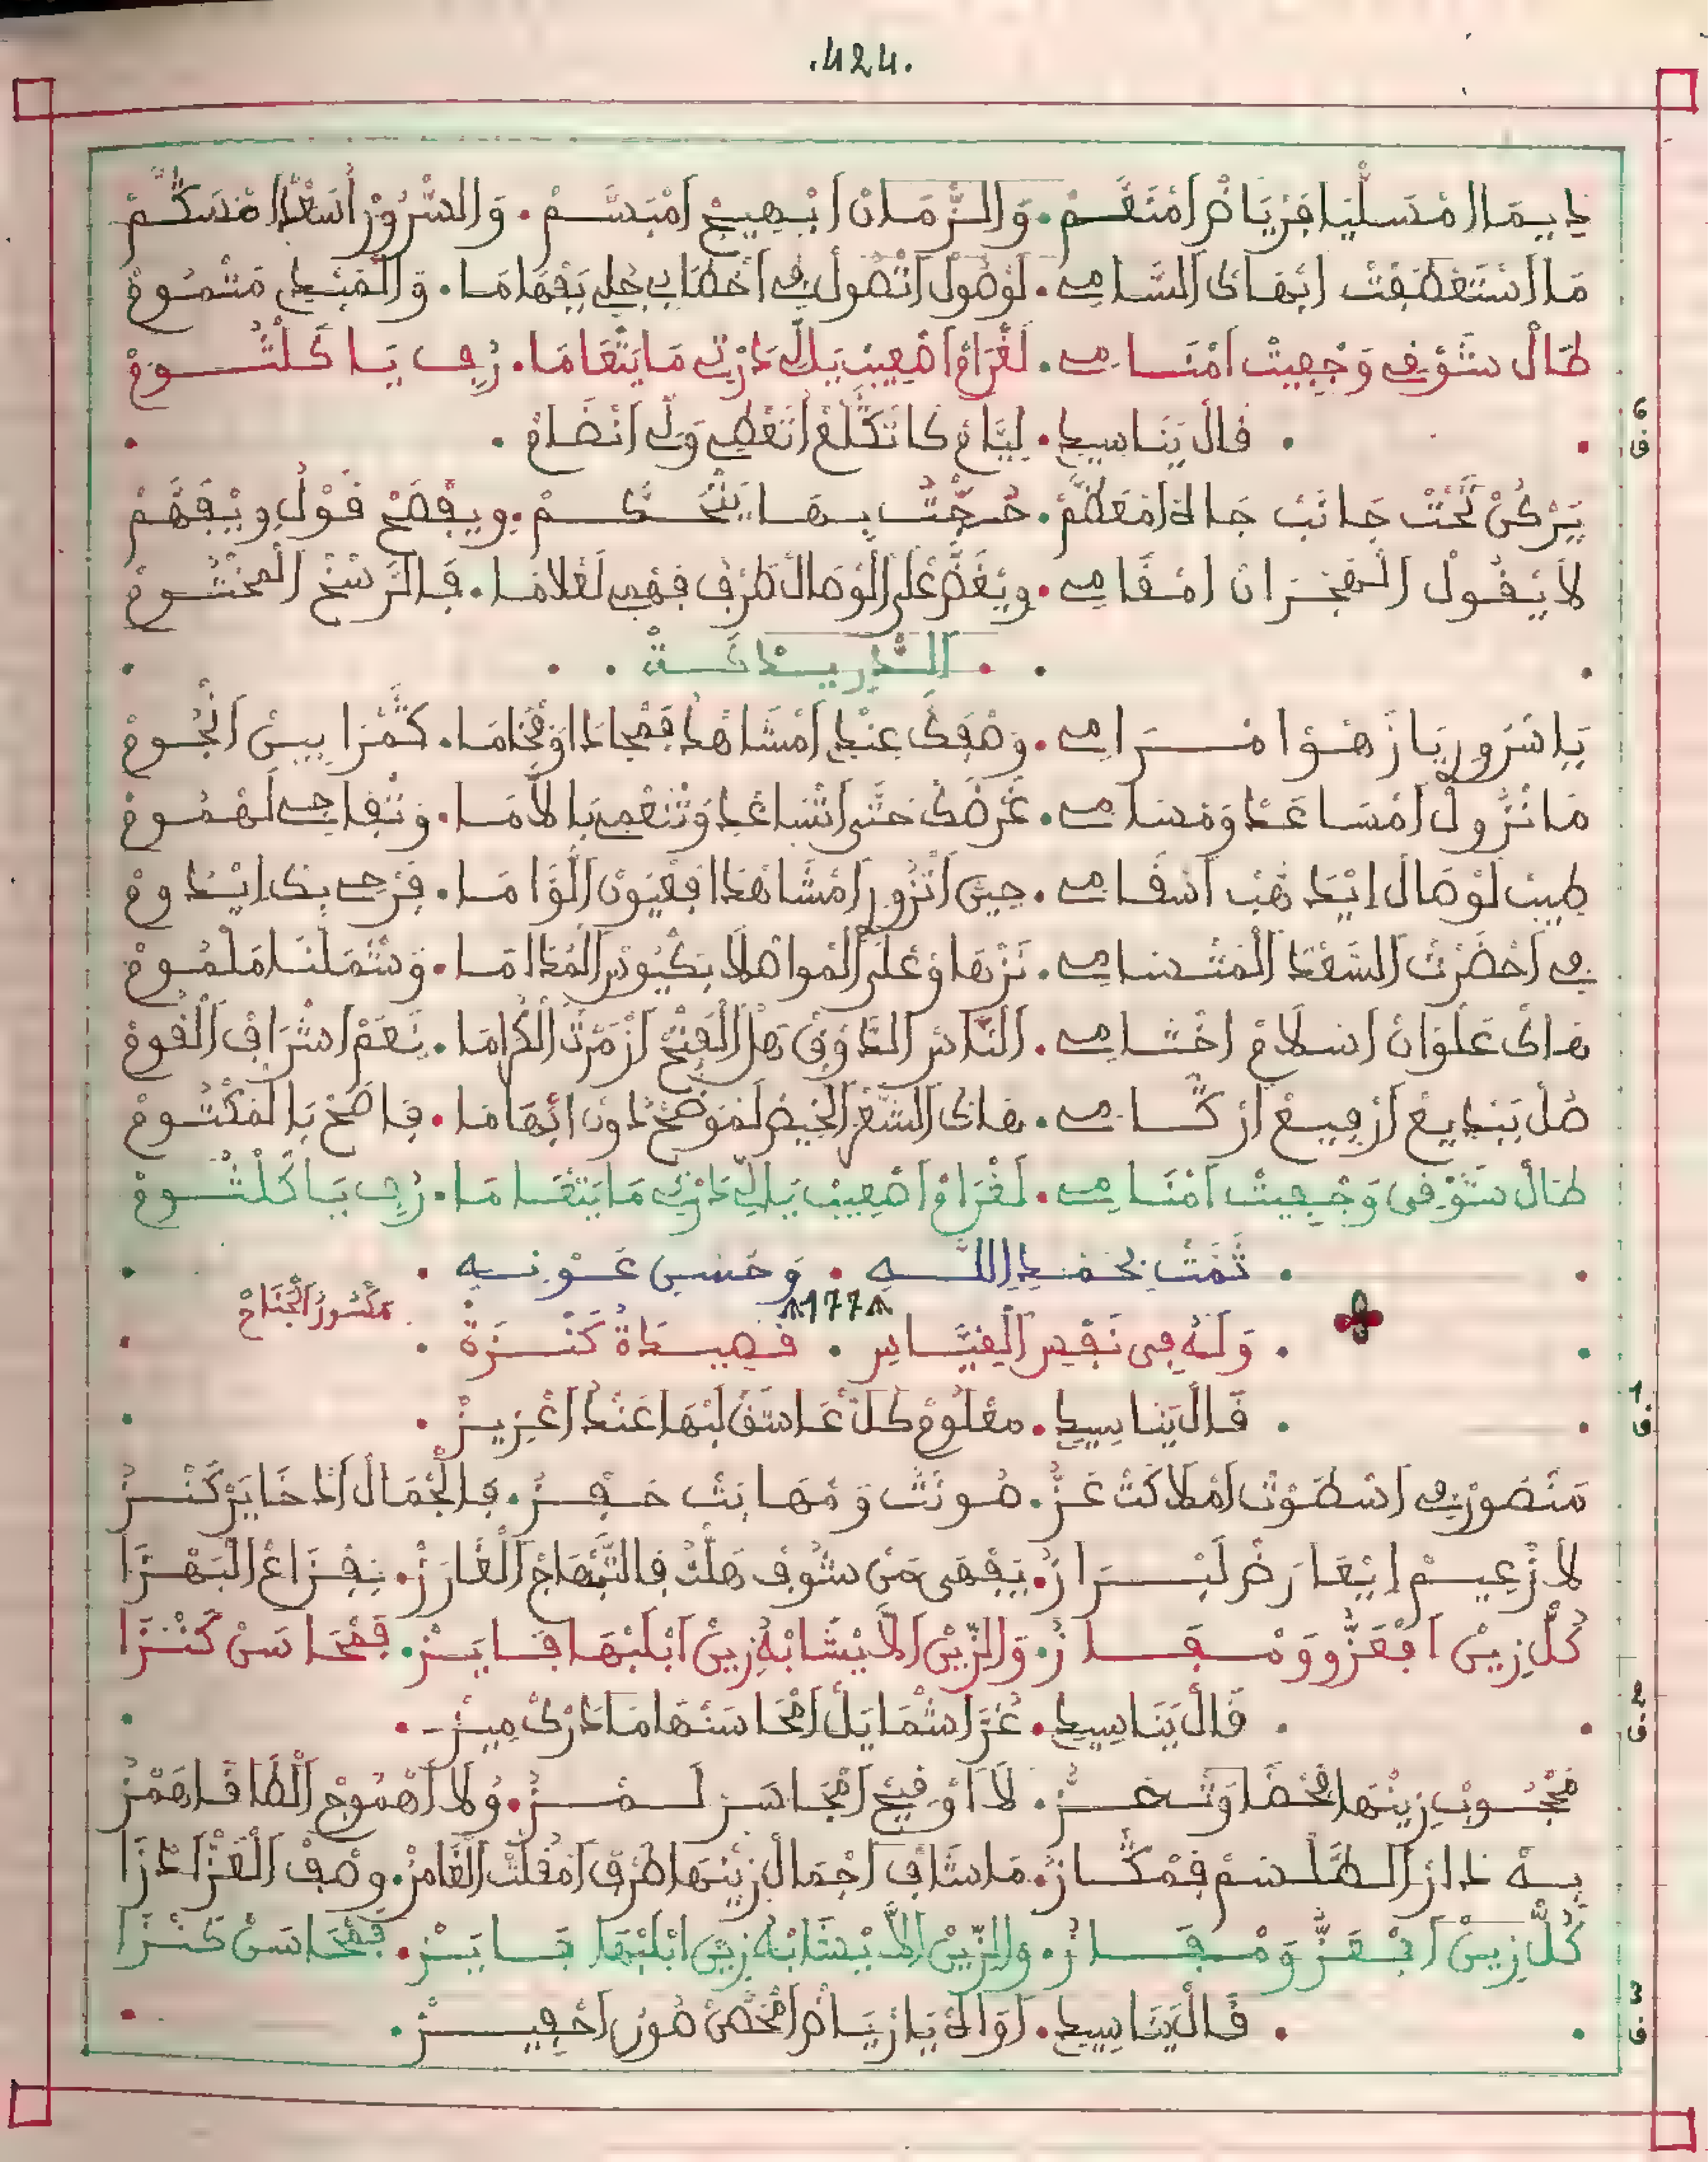 .424.
دِيمَا امْسَلْيَا فَرْيَاضْ امْنَغَّمْ . وَالزّْمَانْ ابْهِيجْ امْبَسَّمْ . وَالسّْرُورْ اسْعَدْ امْسَكَّمْ
مَا اسْتَعْطَفْتْ ابْهَاكْ السَّامِي . لَوْصُولْ اتْصُولْ فِي اخْطَابِي جُلِّي بَفْهَامَا . وَالْفَنِيدْ مَشْمُومْ
طَالْ شَوْقِي وَجْفِيتْ امْنَامِي . لَغْرَامْ اصْعِيبْ يَاللِّي دَارْتِي مَا يَتْعَامَا . رُفِي يَا كَلْثُومْ
6
ق
. قَالْ يَنَاسِيدِي . لِيَّامْ كَا تَكَلَّعْ اتْعْطِي وَلِّي انْضَامْ .
يَرْكُنْ تَحْتْ جَانَبْ جَاهْ امْعَظَّمْ . حُرْجْتْ بِهَا يَتْحَكَّمْ . وِيفْصَحْ قَوْلُ وِيْفَهَّمْ
لَا يْقُولْ الْهَجْرَانْ امْقَامِي . وِيْغَضّْ عْلَى الْوْصَالْ طَرْفْ فِهْمِي لَعْلَامَا . فَالرَّسْخْ الْمَخْتُومْ
. الدّْرِيدْكَةْ .
يَا سْرُورِي يَا زَهْوْ امْرَامِي . وَصْفَكْ عِنْدِي امْشَاهْدَ فَمْجَادَا وَفْخَامَا . كَقَمْرَا بِينْ انْجُومْ
مَا نْزُولْ امْسَاعَدْ وَمْسَامِي . غَرْضَكْ حَتَّى اتْسَاعْدِي وَتْنَعْمِي بَالَامَا . وَتْفَاجِي لَهْمُومْ
طِيبْ لَوْصَالْ ايْدَهَبْ اسْقَامِي . حِينْ اتْزُورْ امْشَاهْدَا فَعْيُونْ الْوَّامَا . فَرْحِي بِكْ ايْدُومْ
فِي احْضَرْتْ السَّعْدْ الْمَتْسَامِي . نَزْهَاوْ عْلَى الْمُوَاصْلَا بَكْيُوسْ الْمْدَامَا . وَشْمَلْنَا مَلْمُومْ
هَاكْ عَلْوَانْ اسْلَامْ اخْتَامِي . النَّاسْ الدُّوقْ هَلْ الْفَتْحْ ازْمَرْتْ الْكْرَامَا . نَعَمْ اشْرَافْ الْقُومْ
صُلْ بَبْدِيعْ ارْفِيعْ ارْكَامِي . هَاكْ الشَّعْرْ الْخِيضْ لَمْوَضَّحْ دُونْ ابْهَامَا . فَاضَحْ بَالْمَكْتُومْ
طَالْ شَوْقِي وَجْفِيتْ امْنَامِي . لَغْرَامْ اصْعِيبْ يَاللِّي دَارْتِي مَا يَتْعَامَا . رُفِي يَا كَلْثُومْ
. تَمَّتْ بِحَمْدِ اللَّهِ . وَحُسْنِ عَوْنِهِ .
177
. وَلَهُ فِي نَفْسِ الْقِيَاسِ . قَصِيدَةُ كَنْزَةْ . مَكْسُورُ الْجَنَاحْ
1
ق
. قَالْ يَنَاسِيدِي . مَعْلُومْ كُلّْ عَاشَقْ لَبْهَا عَنْدُ اعْزِيزْ .
مَنْصُورْتِي اسْطَوْتْ امْلَاكَتْ عَزّْ . صُونَتْ وَمْهَابَتْ حَفْزُ . فَالْجْمَالْ ادْخَايَرْ كَنْزُ
لَا زْعِيمْ ايْعَارَضْ لَبْرَازْ . يَفْهَى مَنْ شُوفْ هَلْتُ فَالتّْبْهَاجْ الْغَارَزْ . بَفْزَاعْ الْبَهْزَا
كُلّْ زِينْ افْعَزُّو وَمْفَازُ . وَالزِّينْ الَّا يْشَابْهُ زِينْ ابْلَبْهَا فَايَزْ . فَمْحَاسَنْ كَنْزَا
2
ق
. قَالْ يَنَاسِيدِي . عُزَّ اشْمَايَلْ امْحَاسَنْهَا مَا دَرْكْ مِيزْ .
مَحْجُوبْ زِينْهَا مَحْضَاوْتَخْزْ . لَا اوْقِيحْ امْجَاسَرْ لَمْزُ . وُلَا اهْمُوجْ الْظَافَا هَمْزُ
بِهْ دَارْ الطَّلْسَمْ فَمْكَازْ . مَا شَافْ اجْمَالْ زِينْهَا طَرْفْ امْقَلْتْ الْغَامَزْ . وِصْفْ الْغَزَّا دَزَّا
كُلّْ زِينْ افْعَزُّ وَمْفَازُ . وَالزِّينْ الَّا يْشَابْهُ زِينْ ابْلَبْهَا فَايَزْ . فَمْحَاسَنْ كَنْزَا
3
ق
. قَالْ يَنَاسِيدِي . اوَاهْ يَا زْيَامْ امْخَصَّنْ صُورْ احْفِيزْ .